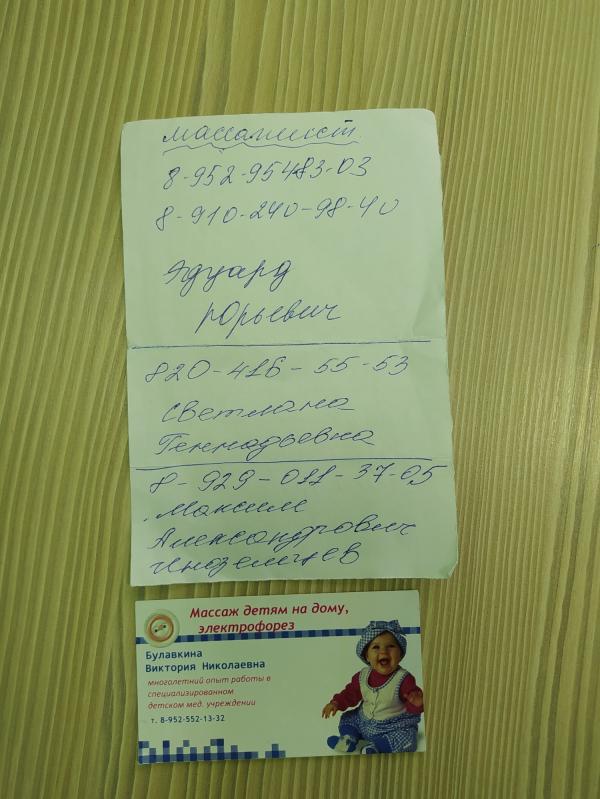 массажист
8-952-95483-03
8-910-240-98-40
Эдуард
Юрьевич
820-416-55-53
Светлана
Геннадьевна
8-929-011-37-05
Максим
Александрович
Иноземцев
Массаж детям на дому,
электрофорез
Булавкина
Виктория Николаевна
многолетний опыт работы в
специализированном
детском мед. учреждении
т. 8-952-552-13-32